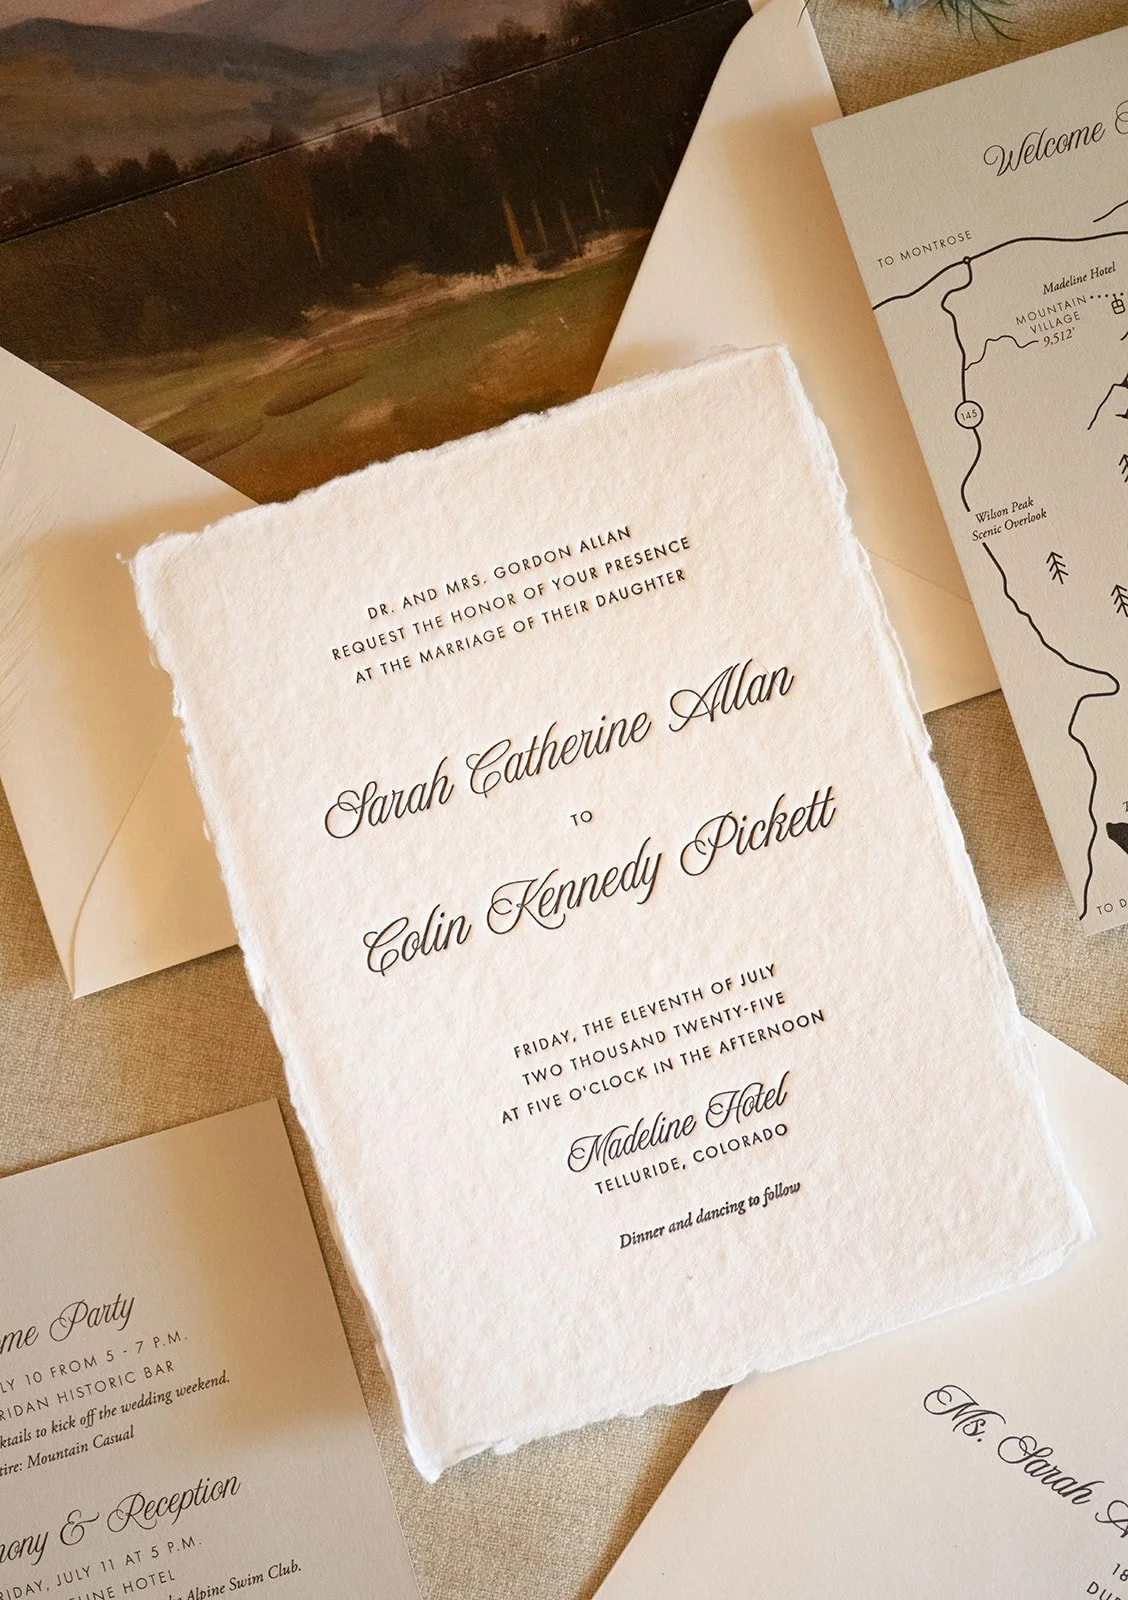 DR. AND MRS. GORDON ALLAN
REQUEST THE HONOR OF YOUR PRESENCE
AT THE MARRIAGE OF THEIR DAUGHTER
Sarah Catherine Allan
TO
Colin Kennedy Pickett
FRIDAY, THE ELEVENTH OF JULY
TWO THOUSAND TWENTY-FIVE
AT FIVE O'CLOCK IN THE AFTERNOON
Madeline Hotel
TELLURIDE, COLORADO
Dinner and dancing to follow
Welcome
TO MONTROSE
Madeline Hotel
MOUNTAIN
VILLAGE
9,512'
145
Wilson Peak
Scenic Overlook
TO D
ome Party
LY 10 FROM 5 - 7 P.M.
RIDAN HISTORIC BAR
ktails to kick off the wedding weekend.
tire: Mountain Casual
mony & Reception
RIDAY, JULY 11 AT 5 P.M.
LINE HOTEL
Alpine Swim Club.
Ms. Sarah A
18
DU